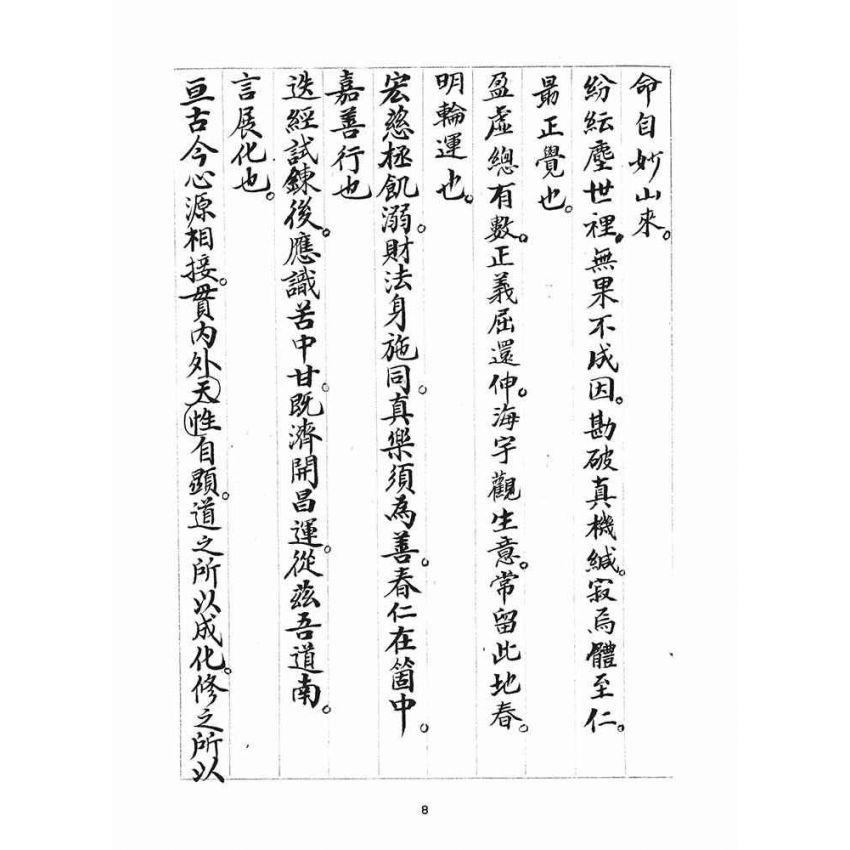 命自妙山來。
紛紜塵世裡。無果不成因。勘破真機緘。寂焉體至仁。
最正覺也。
盈虛總有數。正義屈還伸。海宇觀生意。常留此地春。
明輪運也。
宏慈拯飢溺。財法身施同。真樂須為善。春仁在箇中。
嘉善行也
迭經試鍊後。應識苦中甘。既濟開昌運。從茲吾道南。
言展化也。
亘古今心源相接。貫內外天性自顯。道之所以成化。修之所以
8